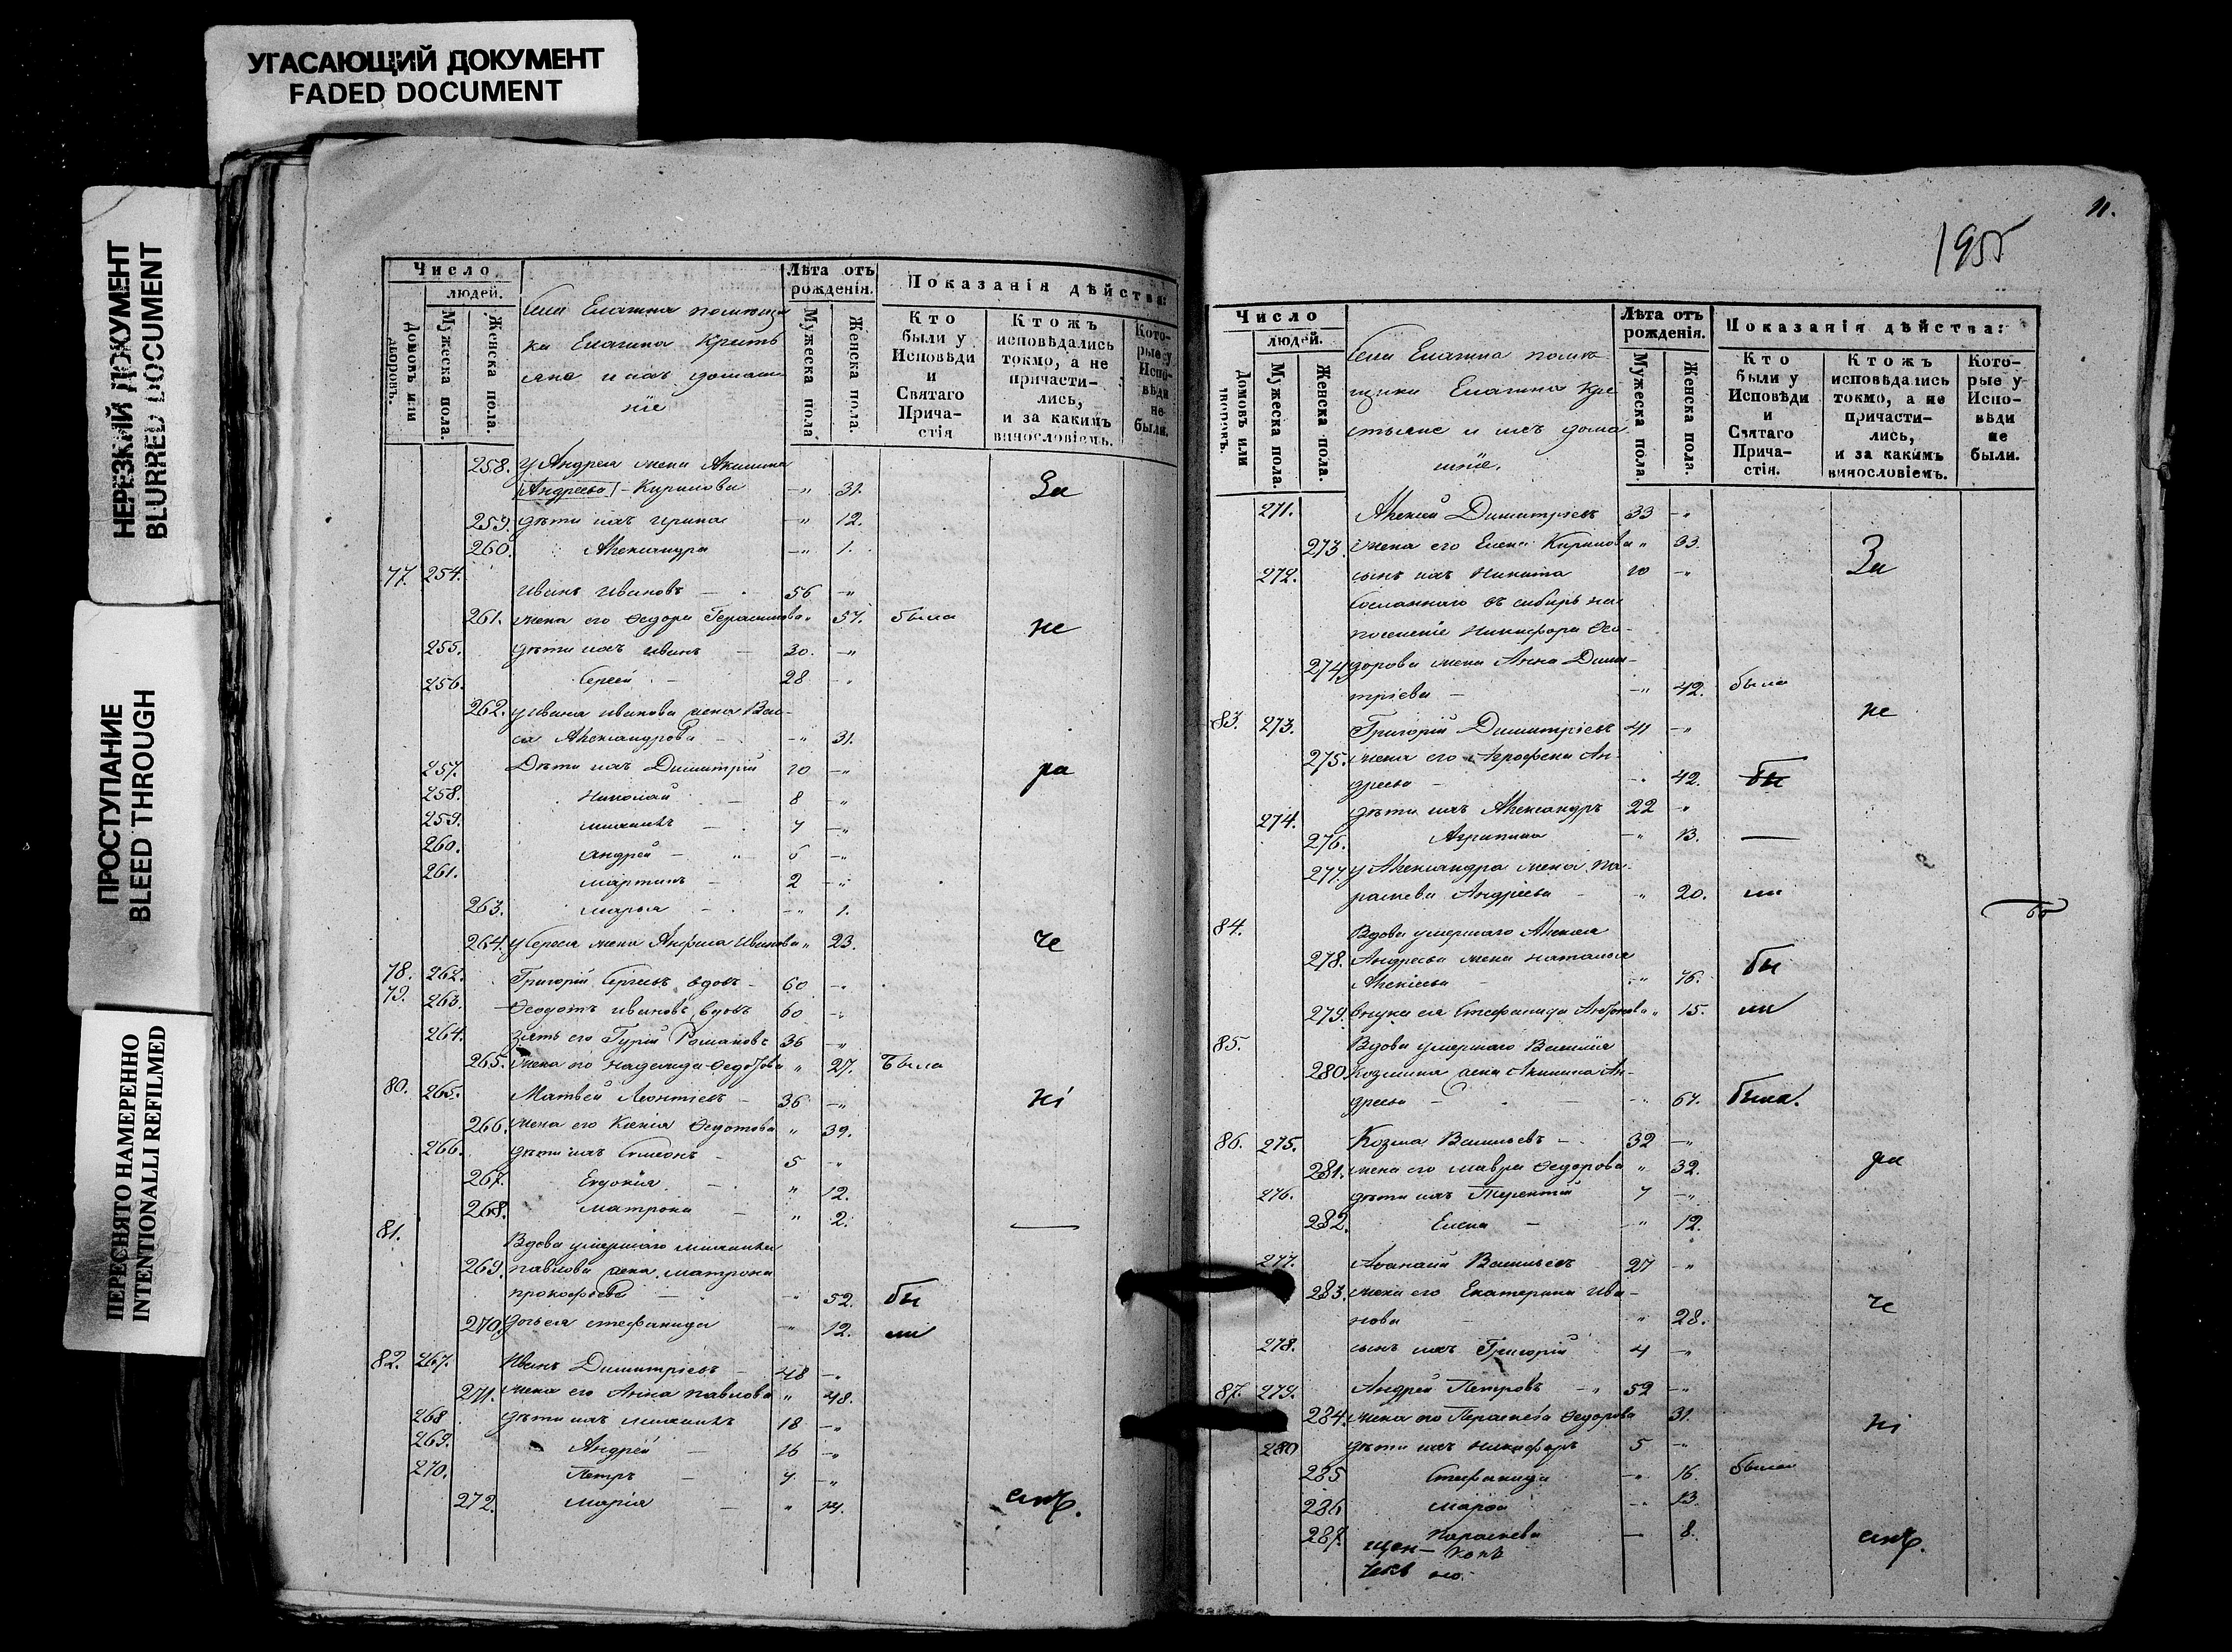 УГАСАЮЩИЙ ДОКУМЕНТ
FADED DOCUMENT
НЕРЕЗКИЙ ДОКУМЕНТ
BLURRED DOCUMENT
ПРОСТУПАНИЕ
BLEED THROUGH
ПЕРЕСНЯТО НАМЕРЕННО
INTENTIONALLI REFILMED
Число
людей.
Домовъ или дворовъ.
Мужеска пола.
Женска пола.
Села Елагина помѣщи
ка Елагина Крестья
яне и ихъ домаш
ніе
Лѣта отъ рожденія.
Мужеска пола
Женска пола.
Показанія дѣйства:
Кто были у Исповѣди и Святаго Прича-стія
Ктожъ исповѣдались токмо, а не причасти-лись, и за какимъ винословіемъ.
Кото-рые у Испо-вѣди не были.
258. у Андрея жена Акилина
Андреева Кирилова —„ 31. За
259. дѣти ихъ Ирина —„ 12.
260. Александра —„ 1.
77. 254. Иванъ Ивановъ — 56 —„
261. жена его Ѳедора Герасимова „ 57. была не
255. дѣти ихъ Иванъ — 30. —„
256. Сергей — 28 —„
262. у Ивана Иванова жена Вас-
са Александрова —„ 31.
257. Дѣти ихъ Димитрій 10 —„ ра
258. Николай — 8 —„
259. Михаилъ — 7 —„
260. Андрей — „ 6 —„
261. Мартинъ — 2 —„
263. Марья — —„ 1.
264. у Сергея жена Анфиса Иванова „ 23. че
78. 262. Григорій Сергеевъ вдовъ — 60 —„
79. 263. Ѳеодотъ Ивановъ вдовъ 60 —„
264. зять его Гурій Романовъ 36 —„
265. жена его Надежда Ѳедотова „ 27. Была
80. 265. Матвей Леонтіевъ — 36 —„ ні
266. жена его Ксенія Ѳедотова „ 39.
266. дѣти ихъ Симеонъ — 5 —„
267. Евдокія — „ 12.
268. Матрона — „ 2. —
81. Вдова умершаго Михаила
269. Павлова жена Матрона
Прокофьева — —„ 52. бы
270. дочь ея Стефанида —„ 12. ли
82. 267. Иванъ Димитріевъ — 48 —„
271. жена его Анна Павлова „ 48.
268. дѣти ихъ Михаилъ 18 —„
269. Андрей — 16 —„
270. Петръ — 7. —„
272. Марія — „ 14. емъ.
11.
1955
Число
людей.
Домовъ или дворовъ.
Мужеска пола.
Женска пола.
Села Елагина помѣ
щика Елагина Кре
стьяне и ихъ дома
шніе.
Лѣта отъ рожденія.
Мужеска пола.
Женска пола.
Показанія дѣйства:
Кто были у Исповѣди и Святаго Прича-стія.
Ктожъ исповѣдались токмо, а не причасти-лись, и за какимъ винословіемъ.
Кото-рые у Испо-вѣди не были.
271. Алексей Димитріевъ 33 —„
273. жена его Елена Кирилова „ 33. За
272. сынъ ихъ Никита 10 —„
Сосланнаго въ сибирь на
поселеніе Никифора Ѳео-
274. дорова жена Анна Дими-
тріева — —„ 42. была
83. 273. Григорій Димитріевъ 41 —„ не
275. жена его Агрофена Ан-
дреева — —„ 42. бы
274. дѣти ихъ Александръ 22 —„
276. Агрипина —„ 13. —
277. у Александра жена Па-
раскева Андреева — „ 20. ли
84. Вдова умершаго Алексея
278. Андреева жена Наталья
Алексіева — —„ 76. бы
279. внука ея Стефанида „ 15. ли
85. Вдова умершаго Василія
280. Козмина жена Акилина Ан-
дреева — —„ 67. была.
86. 275. Козма Васильевъ — 32 —„
281. жена его Мавра Ѳедорова „ 32. ра
276. дѣти ихъ Терентій 7 —„
282. Елена — —„ 12.
277. Аѳанасій Васильевъ 27 —„
283. жена его Екатерина Ива-
нова — „ 28. че
278. сынъ ихъ Григорій 4 —„
87. 279. Андрей Петровъ — „ 52 —„
284. жена его Параскева Ѳедорова 31. ні
280 дѣти ихъ Никифоръ 5 —„
285 Стефанида —„ 16. была
286 Марѳа —„ 13.
287. Параскева — 8. емъ.